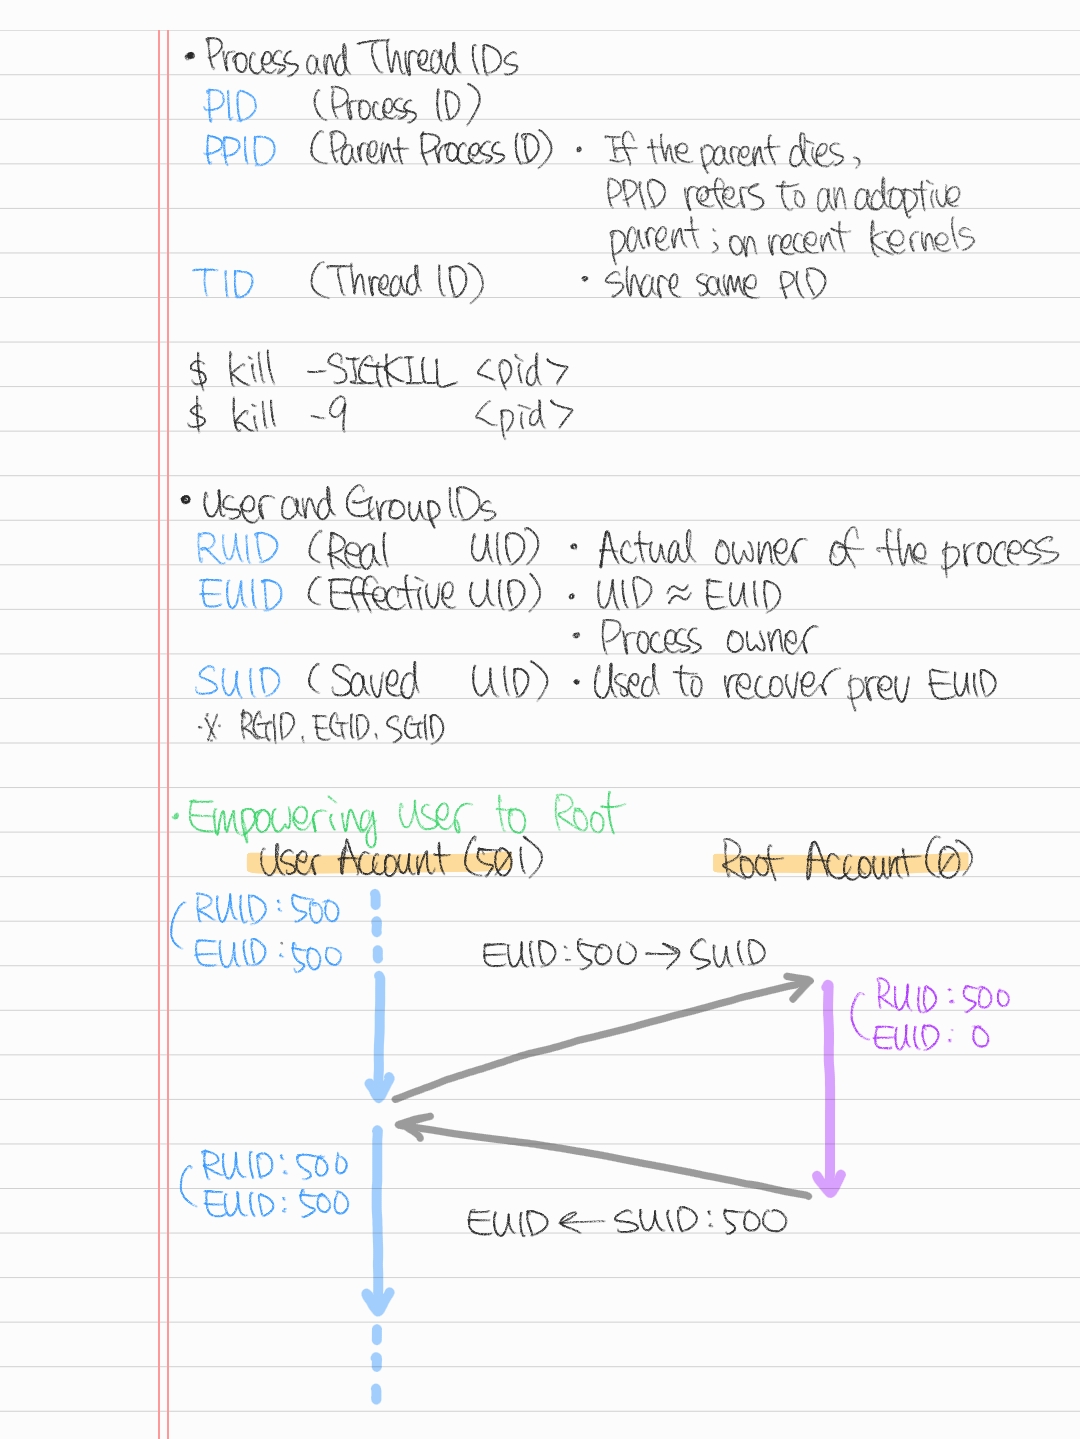 • Process and Thread IDs
PID (Process ID)
PPID (Parent Process ID) • If the parent dies,
PPID refers to an adoptive
parent; on recent kernels
TID (Thread ID) • share same PID
$ kill -SIGKILL <pid>
$ kill -9 <pid>
• User and Group IDs
RUID (Real UID) • Actual owner of the process
EUID (Effective UID) • UID ≈ EUID
• Process owner
SUID (Saved UID) • Used to recover prev EUID
※ RGID, EGID, SGID
• Empowering User to Root
User Account (501) Root Account (0)
RUID: 500
EUID: 500
EUID: 500 → SUID
RUID: 500
EUID: 0
RUID: 500
EUID: 500
EUID ← SUID: 500